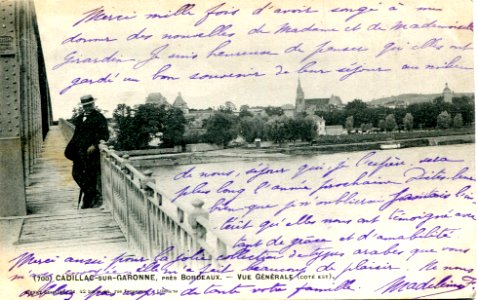 Merci mille fois d'avoir songé à me
donner des nouvelles de Madame et de Mademoiselle
Girardin. Je suis heureuse de penser qu'elles ont
gardé un bon souvenir de leur séjour au milieu
de nous, séjour qui je l'espère sera
plus long l'année prochaine. Dites leur
bien que je n'oublierai jamais l'in
qu'elles nous ont témoigné avec
tant de grâce et d'amabilité
Merci aussi pour la jolie collection de types arabes que vous
m'a beaucoup de plaisir. Ne nous
pas auprès de toute votre famille. Madeleine
(700) CADILLAC-SUR-GARONNE, PRÈS BORDEAUX. - VUE GÉNÉRALE (CÔTÉ EST).